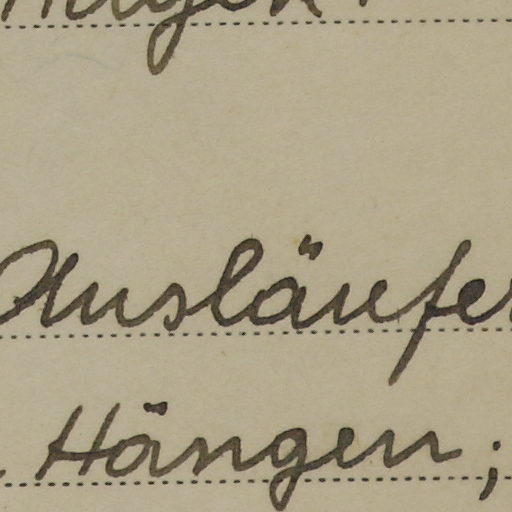 Ausläufer
Hängen;